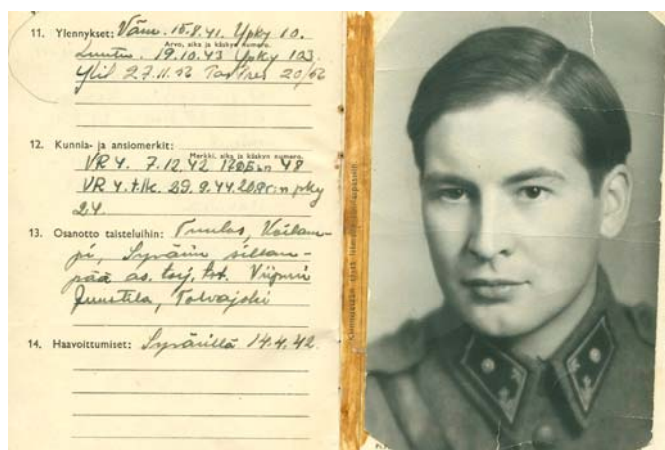 11. Ylennykset: Vänr. 15.8.41. Ypky 10.
Arvo, aika ja käskyn numero.
19.10.43 Ypky 123
Ylil 27.11.56 20/56
12. Kunnia- ja ansiomerkit:
Merkki, aika ja käskyn numero.
VR 4. 7.12.42 48
VR 4. 29.9.44. pky
24.
13. Osanotto taisteluihin: Tuulos, Voilam-
pi, Syvärin sillan-
pää as. torj. tst. Viipuri
Juustila, Tolvajoki
14. Haavoittumiset: Syvärillä 14.4.42.